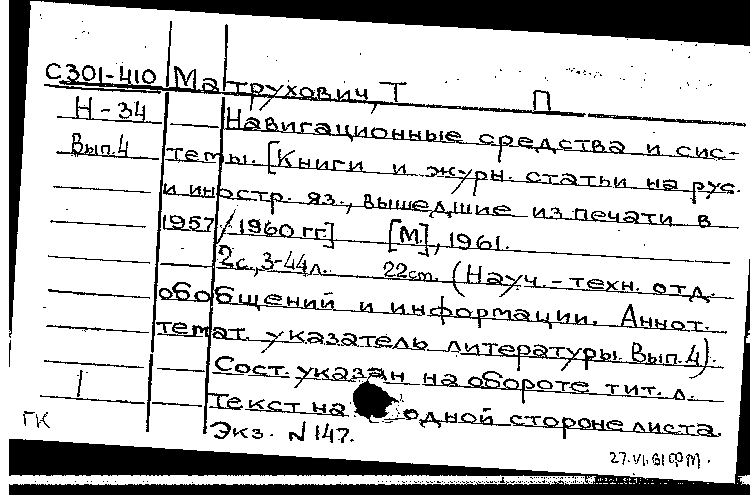 С301-410 Матрухович, Т П
Н-34 Навигационные средства и сис-
Вып.4 темы. [Книги и журн. статьи на рус.
и иностр. яз., вышедшие из печати в
1957/1960 гг.] [М.], 1961.
2с., 3-44л. 22cm. (Науч.-техн. отд.
обобщений и информации. Аннот.
темат. указатель литературы. Вып.4).
Сост. указан на обороте тит. л.
1 Текст на одной стороне листа.
ГК Экз. N 147.
27.VI.61